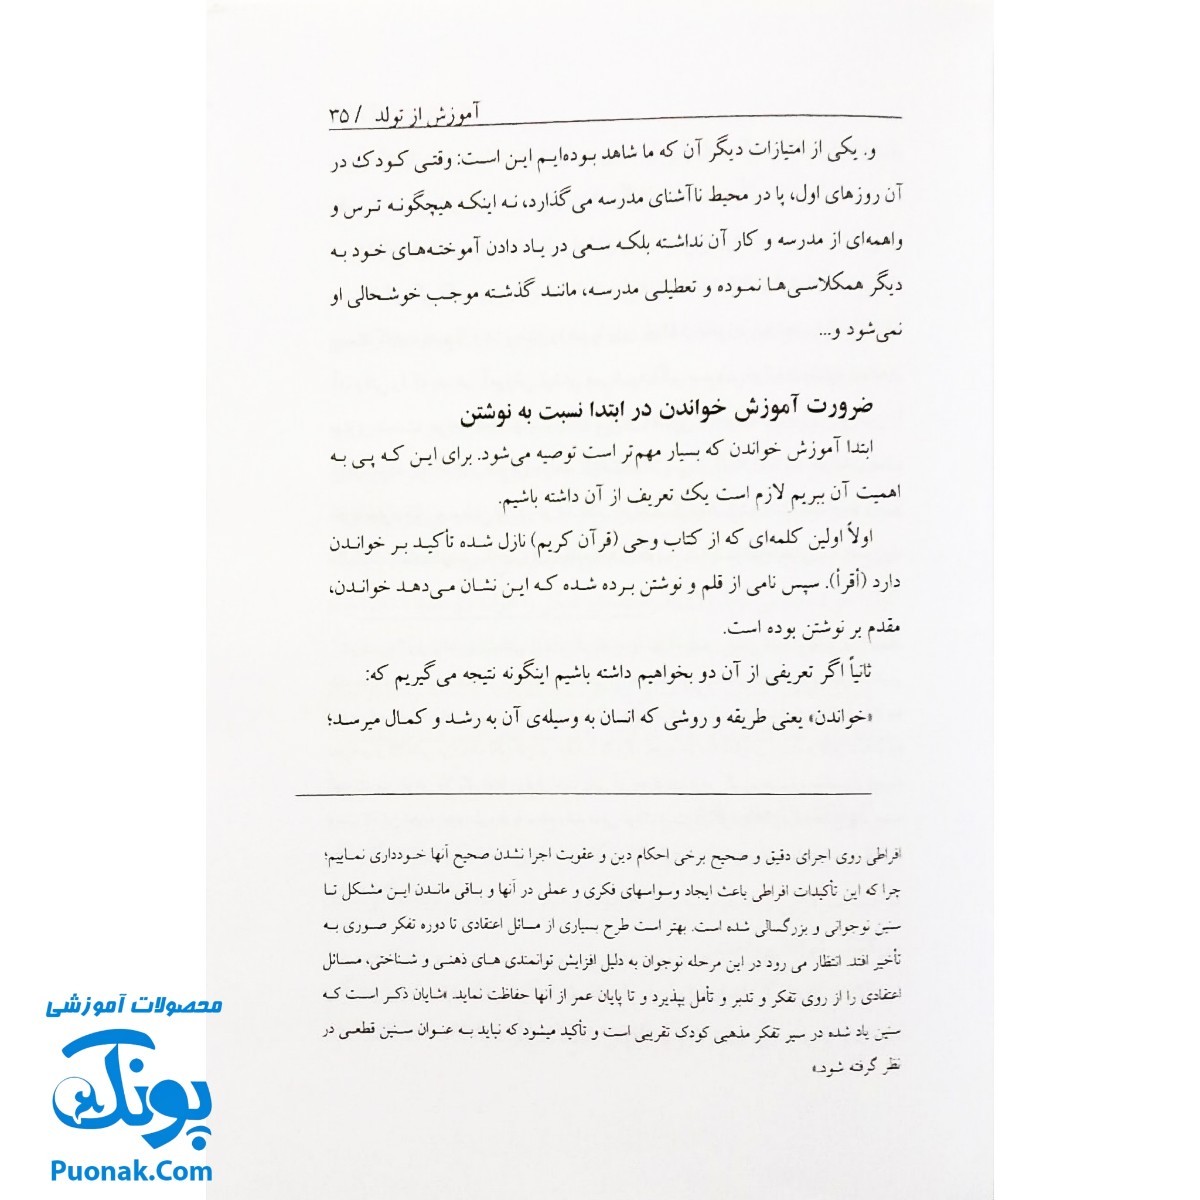 آموزش از تولد / ۳۵
و. یکی از امتیازات دیگر آن که ما شاهد بوده‌ایم این است: وقتی کودک در
آن روزهای اول، پا در محیط ناآشنای مدرسه می‌گذارد، نه اینکه هیچگونه ترس و
واهمه‌ای از مدرسه و کار آن نداشته بلکه سعی در یاد دادن آموخته‌های خود به
دیگر همکلاسی‌ها نموده و تعطیلی مدرسه، مانند گذشته موجب خوشحالی او
نمی‌شود و...
ضرورت آموزش خواندن در ابتدا نسبت به نوشتن
ابتدا آموزش خواندن که بسیار مهم‌تر است توصیه می‌شود. برای این که پی به
اهمیت آن ببریم لازم است یک تعریف از آن داشته باشیم.
اولاً اولین کلمه‌ای که از کتاب وحی (قرآن کریم) نازل شده تأکید بر خواندن
دارد (أقرأ). سپس نامی از قلم و نوشتن برده شده که این نشان می‌دهد خواندن،
مقدم بر نوشتن بوده است.
ثانیاً اگر تعریفی از آن دو بخواهیم داشته باشیم اینگونه نتیجه می‌گیریم که:
«خواندن» یعنی طریقه و روشی که انسان به وسیله‌ی آن به رشد و کمال میرسد؛
افراطی روی اجرای دقیق و صحیح برخی احکام دین و عقوبت اجرا نشدن صحیح آنها خودداری نماییم؛
چرا که این تأکیدات افراطی باعث ایجاد وسواسهای فکری و عملی در آنها و باقی ماندن این مشکل تا
سنین نوجوانی و بزرگسالی شده است. بهتر است طرح بسیاری از مسائل اعتقادی تا دوره تفکر صوری به
تأخیر افتد. انتظار می رود در این مرحله نوجوان به دلیل افزایش توانمندی های ذهنی و شناختی، مسائل
اعتقادی را از روی تفکر و تدبر و تأمل بپذیرد و تا پایان عمر از آنها حفاظت نماید. «شایان ذکر است که
سنین یاد شده در سیر تفکر مذهبی کودک تقریبی است و تأکید میشود که نباید به عنوان سنین قطعی در
نظر گرفته شود.»
محصولات آموزشی
پونک
Puonak.Com